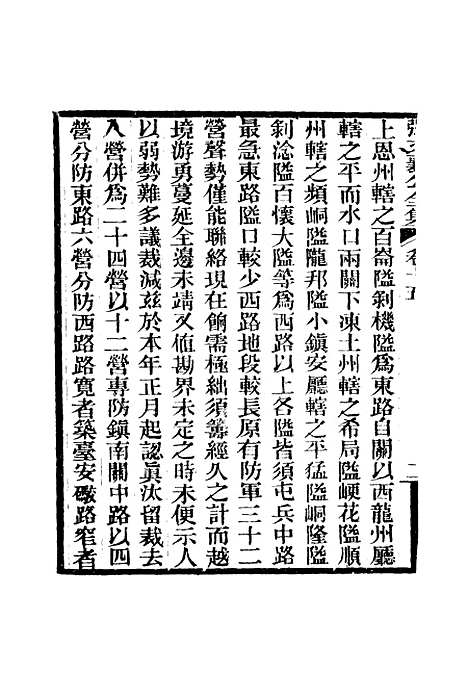 上思州轄之百崙隘剝機隘為東路自關以西龍州廳
轄之平而水口兩關下凍土州轄之希局隘峺花隘順
州轄之頻峒隘隴邦隘小鎮安廳轄之平猛隘峒隆隘
剝淰隘百懷大隘等為西路以上各隘皆須屯兵中路
最急東路隘口較少西路地段較長原有防軍三十二
營聲勢僅能聯絡現在餉需極絀須籌經久之計而越
境游勇蔓延全邊未靖又值勘界未定之時未便示人
以弱勢難多議裁減茲於本年正月起認眞汰留裁去
八營併為二十四營以十二營專防鎮南關中路以四
營分防東路六營分防西路路寬者築臺安礮路窄者
卷十五
二